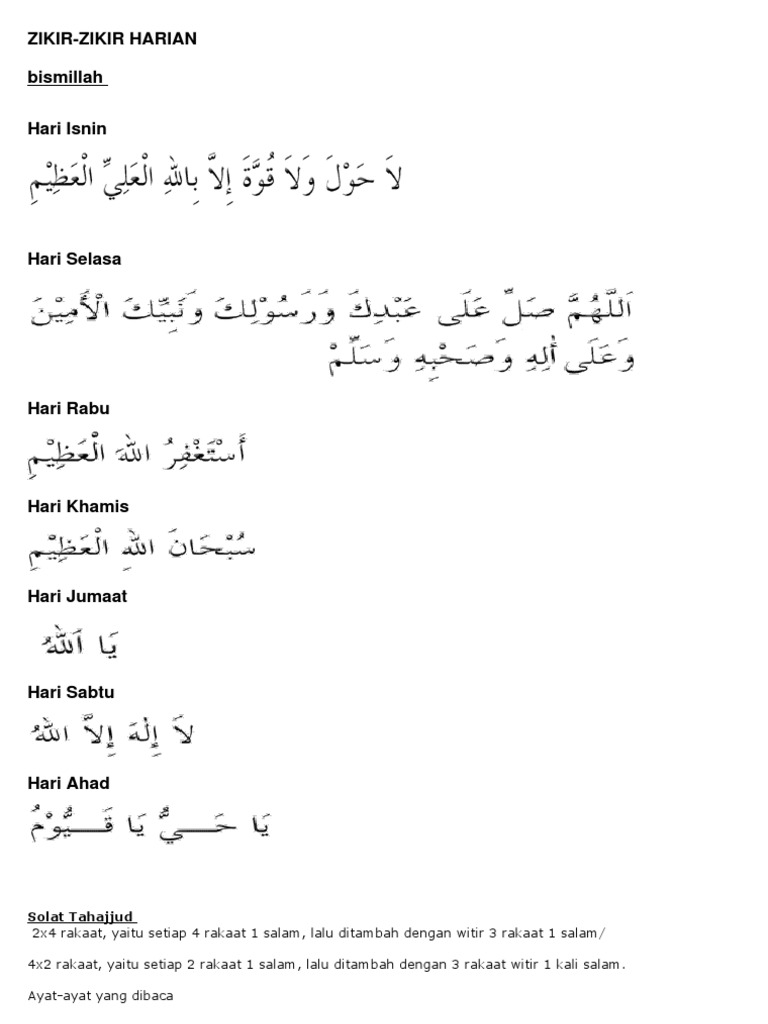 ZIKIR-ZIKIR HARIAN
bismillah
Hari Isnin
لَا حَوْلَ وَلَا قُوَّةَ إِلَّا بِاللهِ الْعَلِيِّ الْعَظِيْمِ
Hari Selasa
اَللَّهُمَّ صَلِّ عَلَى عَبْدِكَ وَرَسُوْلِكَ وَنَبِيِّكَ الْأَمِيْنَ
وَعَلَى أٰلِهِ وَصَحْبِهِ وَسَلِّمْ
Hari Rabu
أَسْتَغْفِرُ اللهَ الْعَظِيْمِ
Hari Khamis
سُبْحَانَ اللهِ الْعَظِيْمِ
Hari Jumaat
يَا اَللهُ
Hari Sabtu
لَا إِلٰهَ إِلَّا اللهُ
Hari Ahad
يَا حَـــيُّ يَا قَـــيُّوْمُ
Solat Tahajjud
2x4 rakaat, yaitu setiap 4 rakaat 1 salam, lalu ditambah dengan witir 3 rakaat 1 salam/
4x2 rakaat, yaitu setiap 2 rakaat 1 salam, lalu ditambah dengan 3 rakaat witir 1 kali salam.
Ayat-ayat yang dibaca